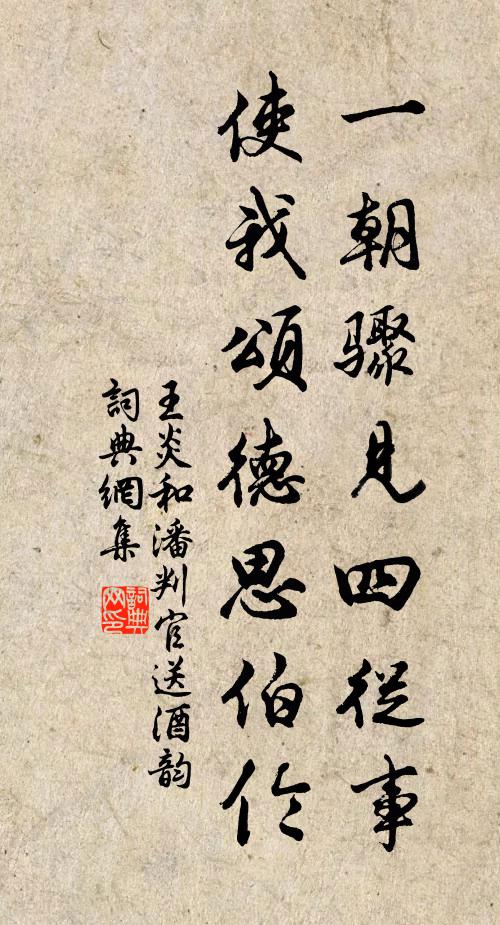 一朝驟見四從事
使我頌德思伯伶
王炎和潘判官送酒韵
詞典網集
詞典
网印